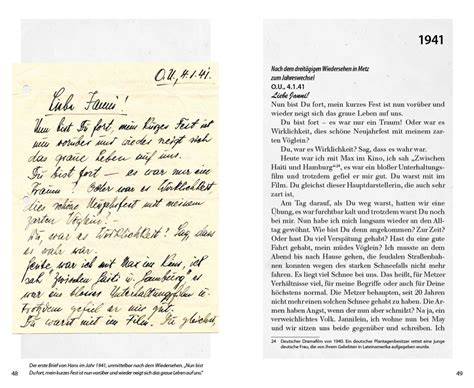 O.U., 4.1.41.
Liebe Fanni!
Nun bist Du fort, mein kurzes Fest ist
nun vorüber und wieder neigt sich
das graue Leben auf uns.
Du bist fort – es war nur ein
Traum! Oder war es Wirklichkeit
dies schöne Neujahrsfest mit meinem
zarten Vöglein?
Du, war es Wirklichkeit? Sag, dass
es wahr war.
Heute war ich mit Max im Kino, ich
sah „Zwischen Haiti u. Hamburg“ es
war ein blosses Unterhaltungsfilm u.
trotzdem gefiel er mir gut.
Du warst mit im Film. Du gleichst
Der erste Brief von Hans im Jahr 1941, unmittelbar nach dem Wiedersehen. „Nun bist
Du fort, mein kurzes Fest ist nun vorüber und wieder neigt sich das graue Leben auf uns.“
48
1941
Nach dem dreitägigen Wiedersehen in Metz
zum Jahreswechsel
O.U., 4.1.41
Liebe Fanni!
Nun bist Du fort, mein kurzes Fest ist nun vorüber und
wieder neigt sich das graue Leben auf uns.
Du bist fort – es war nur ein Traum! Oder war es
Wirklichkeit, dies schöne Neujahrfest mit meinem zarten
Vöglein?
Du, war es Wirklichkeit? Sag, dass es wahr war.
Heute war ich mit Max im Kino, ich sah „Zwischen
Haiti und Hamburg“²⁴, es war ein bloßer Unterhaltungs-
film und trotzdem gefiel er mir gut. Du warst mit im
Film. Du gleichst dieser Hauptdarstellerin, die auch sehr
zart ist.
Am Tag darauf, als Du weg warst, hatten wir eine
Übung, es war furchtbar kalt und trotzdem warst Du noch
bei mir. Nun habe ich mich langsam wieder an den All-
tag gewöhnt. Wie bist Du denn angekommen? Zur Zeit?
Oder hast Du viel Verspätung gehabt? Hast Du eine gute
Fahrt gehabt, mein müdes Vöglein? Ich musste an dem
Abend bis nach Hause gehen, die feudalen Straßenbah-
nen konnten wegen des starken Schneefalls nicht mehr
fahren. Es liegt Schnee wie bei uns. Das heißt, für Metzer
Verhältnisse viel, für meine Begriffe oder auch für Deine
höchstens normal. Die Metzer behaupten, seit 20 Jahren
nicht mehr einen solchen Schnee gehabt zu haben. Die Ar-
men haben Angst, wenn der mm aber schmilzt. Na, ja, ein
verweichlichtes Volk. Janulien, ich wohne auch beim May
und wir sitzen uns beide gegenüber und schreiben. Ich
24 Deutscher Dramafilm von 1940. Ein deutscher Plantagenbesitzer rettet eine junge
deutsche Frau, die von ihrem Geliebten in Lateinamerika aufgegeben wurde.
49